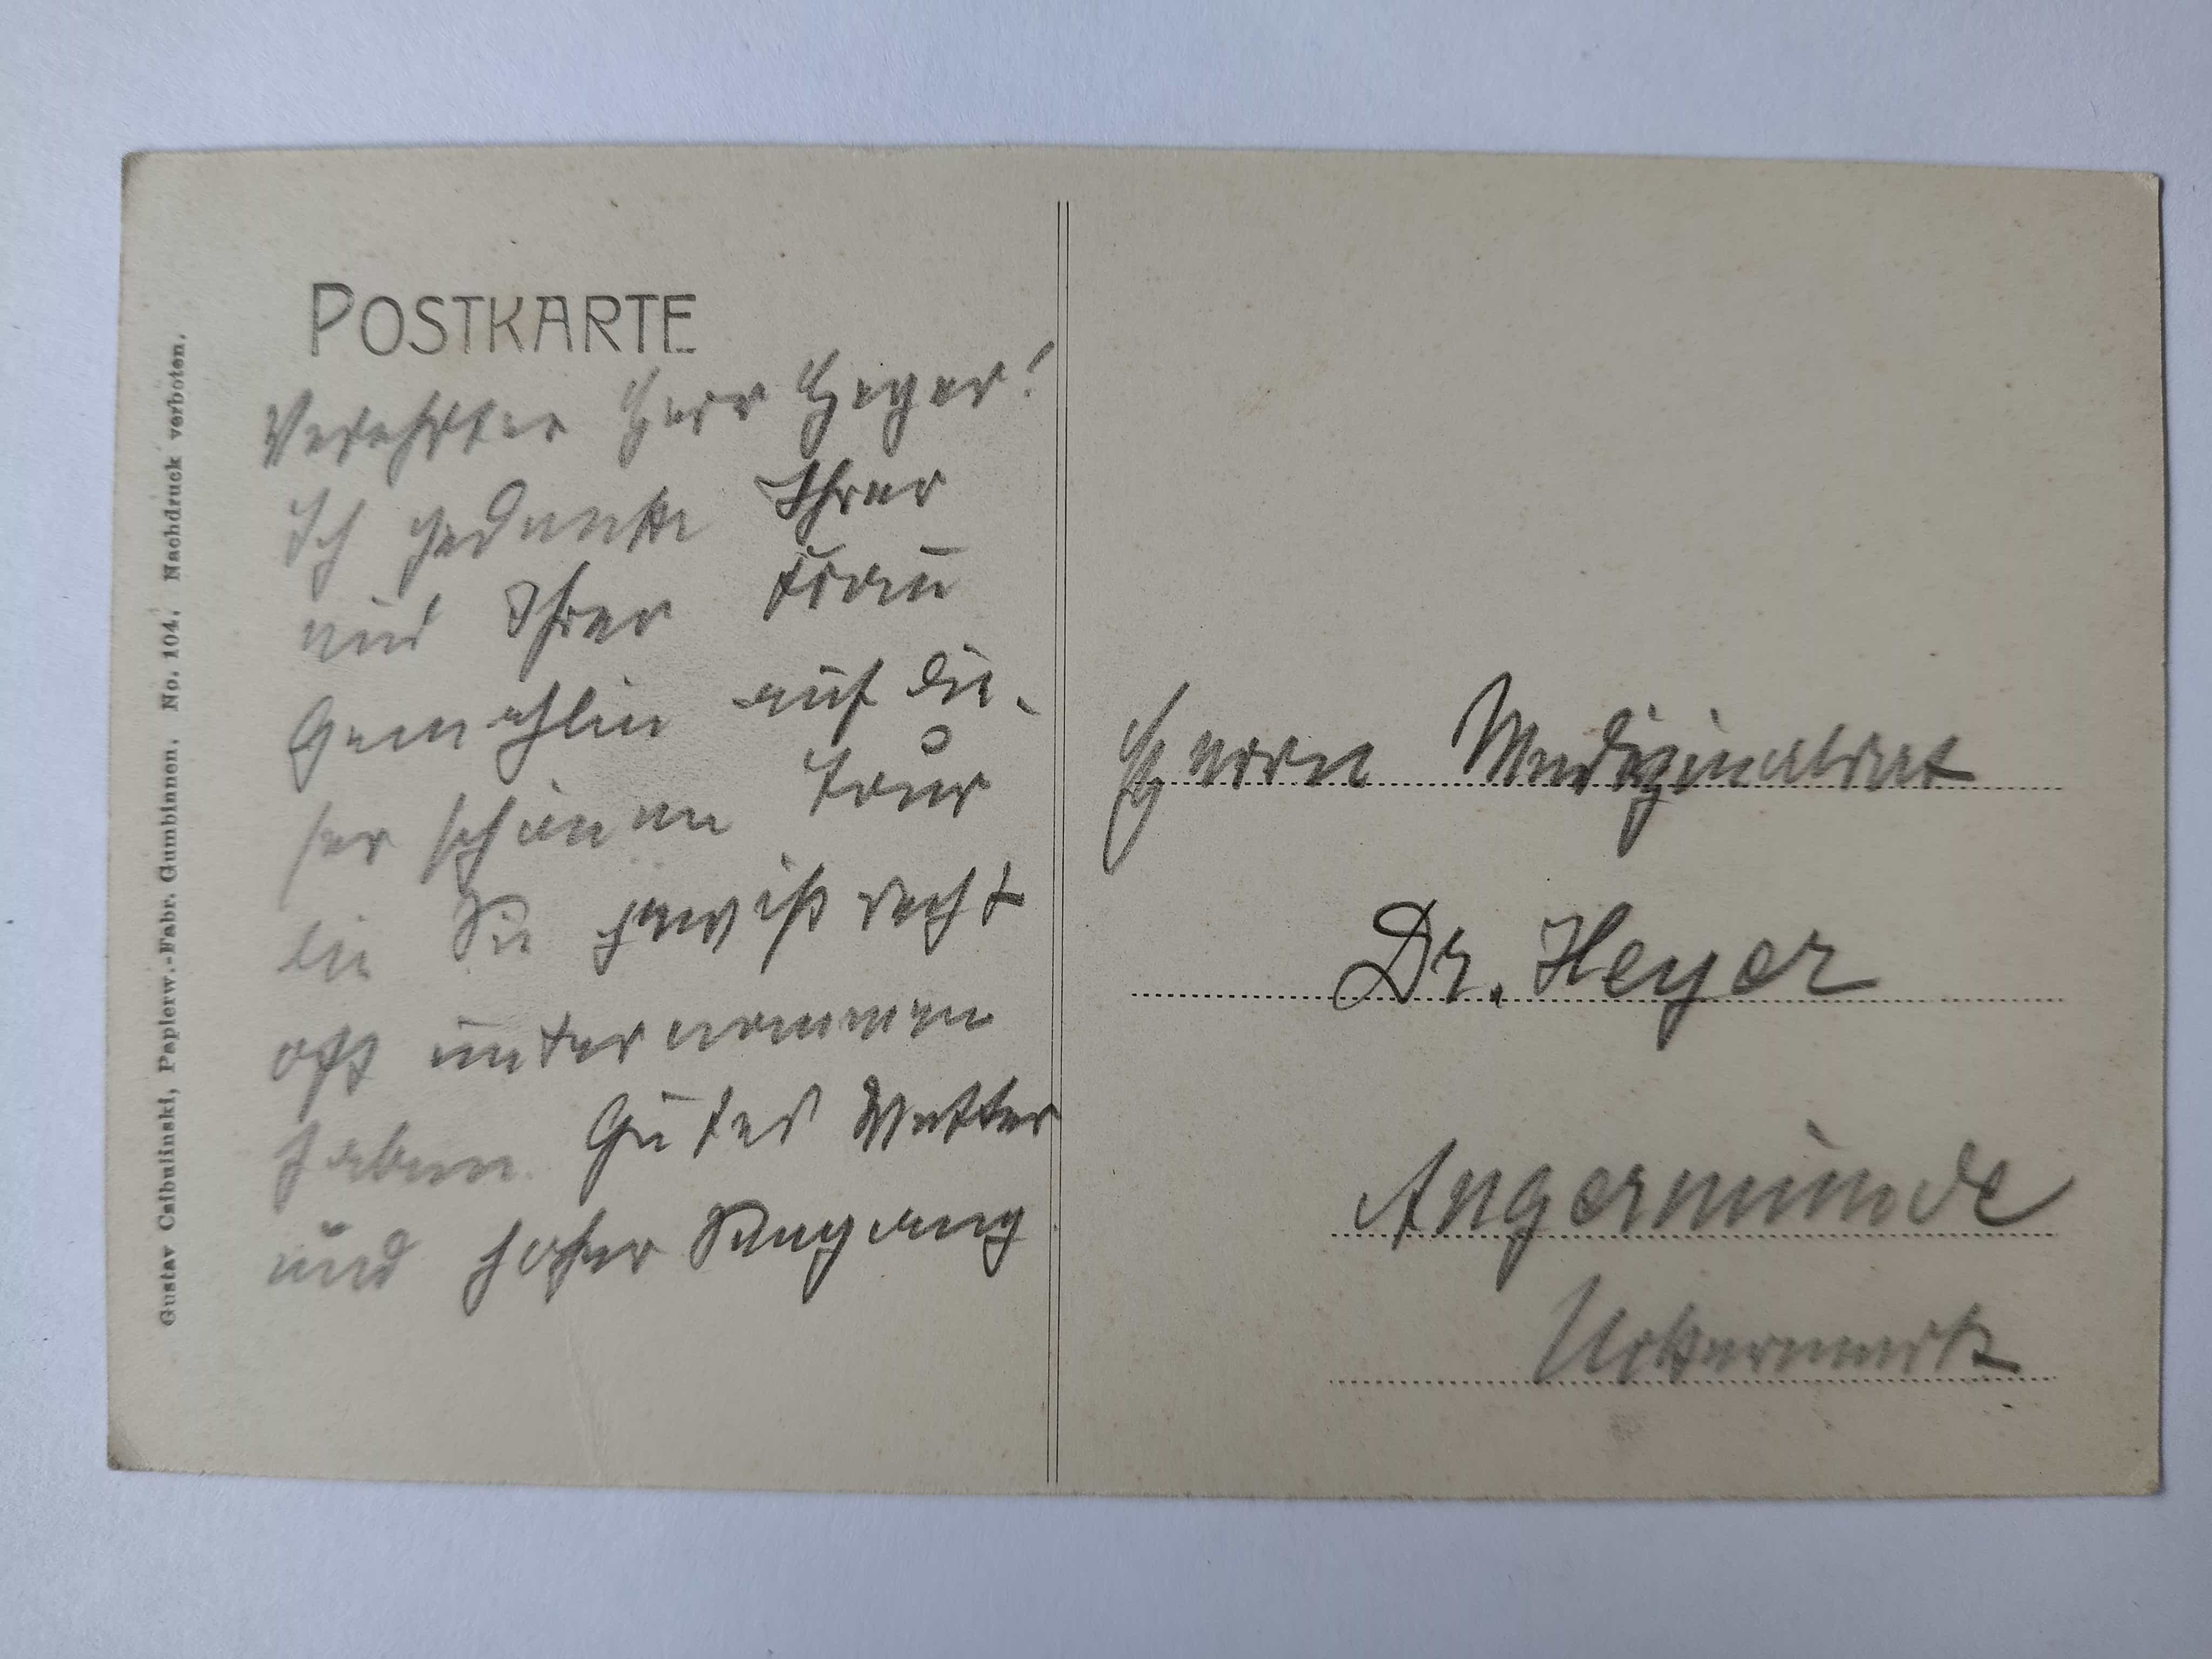 Gustav Czibulinski, Papierw.-Fabr. Gumbinnen. No. 104. Nachdruck verboten.
POSTKARTE
Verehrter Herr Heyer!
Ich gedenke Ihrer
und Ihrer Frau
Gemahlin auf die-
ser schönen Tour
die Sie gewiß recht
oft unternommen
haben. Gutes Wetter
und hoher Seegang
Herrn Medizinalrat
Dr. Heyer
Angermünde
Uckermark